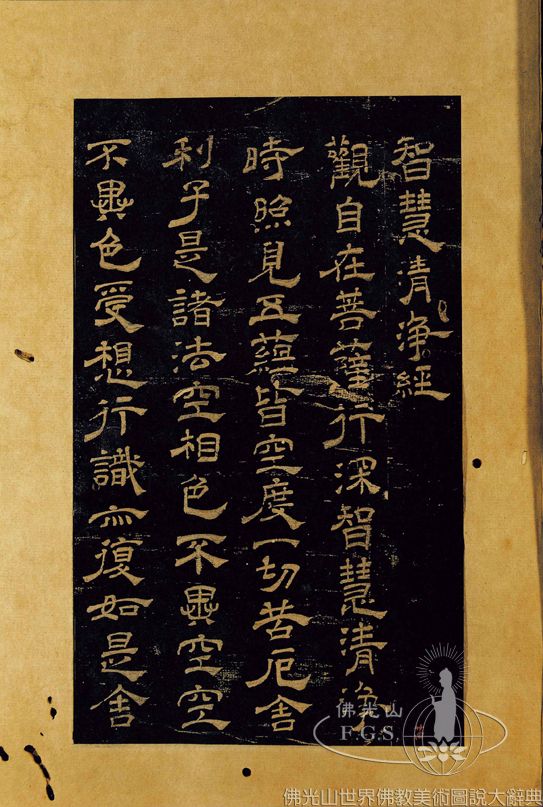 智慧清淨經
觀自在菩薩行深智慧清淨
時照見五蘊皆空度一切苦厄舍
利子是諸法空相色不異空空
不異色受想行識亦復如是舍
佛光山
F.G.S.
佛光山世界佛教美術圖說大辭典